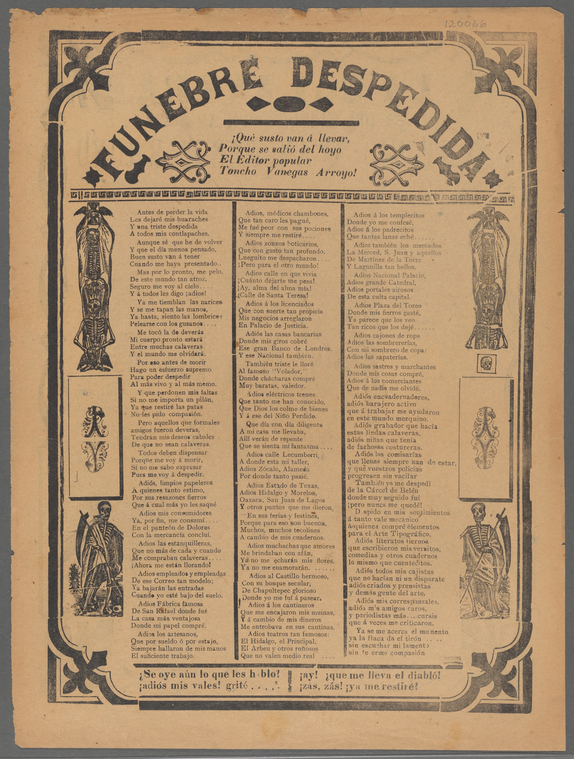 12006b
FUNEBRE DESPEDIDA
¡Qué susto van á llevar,
Porque se salió del hoyo
El Editor popular
Toncho Vanegas Arroyo!
Antes de perder la vida
Les dejaré mis huaraches
Y una triste despedida
A todos mis contlapaches.
Aunque sé que he de volver
Y que el día menos pensado,
Buen susto van á tener
Cuando me haya presentado.
Mas por lo pronto, me pelo,
De este mundo tan atroz,
Seguro me voy al cielo
Y á todos les digo ¡adios!
Ya me tiemblan las narices
Y se me tapan las manos,
Ya hasta, siento las lombrices
Pelearse con los gusanos....
Me tocó la de deverás
Mi cuerpo pronto estará
Entre muchas calaveras
Y el mundo me olvidará.
Por eso antes de morir
Hago un esfuerzo supremo
Para poder despedir
Al más vivo y al más memo.
Y que perdonen mis faltas
Si no me importa un pilón,
Ya que restiré las patas
No les pido compasión.
Pero aquellos que formales
amigos fueron deveras
Tendrán mis deseos cabales
De que no sean calaveras
Todos deben dispensar
Porque me voy á morir,
Si no me sabo expresar
Pues me voy á despedir.
Adiós, limpios papeleros
A quienes tanto estimo,
Por sus resazones fieros
Que á cual más yo les saqué.
Adios mis consumidores
Ya, por fin, me consumí....
En el panteón de Dolores
Con la mercancía concluí.
Adios las estanquilleras,
Que no más de cada y cuando
Me compraban calaveras....
¡Ahora me están llorando!
Adios empleados y empleadas
De ese Correo tan modelo;
Ya bajarán las entradas
Cuando yo esté bajo del suelo.
Adios Fábrica famosa
De San Rafael donde fué
La casa más ventajosa
Donde su papel compré.
Adios los artesanos,
Que por sueldo ó por estajo,
Siempre hallaron de mis manos
El suficiente trabajo.
Adios, médicos chambones,
Que tan caro les pagué,
Me fué peor con sus pociones
Y siempre me restiré....
Adios zonzos boticarios,
Que con gusto tan profundo,
Lueguito me despacharon....
¡Pero para el otro mundo!
Adios calle en que vivía
¡Cuánto dejarte me pesa!
¡Ay, alma del alma mía!
¡Calle de Santa Teresa!
Adios á los licenciados
Que con suerte tan propicia
Mis negocios arreglaron
En Palacio de Justicia.
Adiós las casas bancarias
Donde mis giros cobré
Ese gran Banco de Londres.
Y ese Nacional tambien.
También triste le lloré
Al famoso "Volador,"
Donde chácharas compré
Muy baratas, valedor.
Adios eléctricos trenes
Que tanto me han conocido,
Que Dios los colme de bienes
Y á ese del Niño Perdido.
Que día con día diligente
A mi casa me llevaba,
Allí verán de repente
Que se sienta mi fantasma....
Adios calle Lecumberri,
A donde esta mi taller,
Adios Zócalo, Alameda
Por donde tanto pasié.
Adios Estado de Texas,
Adios Hidalgo y Morelos,
Oaxaca, San Juan de Lagos
Y otros puntos que me dieron,
En sus ferias y festines,
Porque para eso son buenos,
Muchos, muchos tecolines
A cambio de mis cuadernos.
Adios muchachas que amores
Me brindaban con afán,
Ya no me echarás mis flores.
Ya no me enamorarán.
Adios al Castillo hermoso,
Con su bosque secular,
De Chapultepec glorioso
¡Donde yo me fuí á pasear,
Adios á los cantineros
Que me encajaron mis monas,
Y á cambio de mis dineros
Me entrobava en sus cantinas.
Adios teatros tan famosos:
El Hidalgo, el Principal,
El Arbeu y otros reñosos
Que no valen medio real
Adios á los templecitos
Donde yo me confesé,
Adios á los padrecitos
Que tantas lanas eché....
Adios también los mercados
La Merced, S. Juan y aquellos
De Martinez de la Torre
Y Lagunilla tan bellos.
Adios Nacional Palacio,
Adios grande Catedral,
Adios portales airosos
De esta culta capital.
Adios Plaza del Toreo
Donde mis fierros gasté,
Ya parece que los veo
Tan ricos que los dejé....
Adios cajones de ropa
Adios las sombrererías,
Con mi sombrero de copa:
Adios las zapaterías.
Adios sastres y marchantes
Donde mis cosas compré,
Adios á los comerciantes
Que de nadie me olvidé.
Adiós encuadernadores,
adiós barajero activo
que á trabajar me ayudaron
en este mundo mezquino.
Adiós grabador que hacía
estas lindas calaveras,
adiós niñas que tenía
de fachosas costureras.
Adiós las comisarías
que llenas siempre han de estar,
y que vuestros policías
progresen sin vacilar
También ya me despedí
de la Cárcel de Belén
donde muy seguido fuí
¡pero nunca me quedé!
D spido en mis sentimientos
á tanto vale mecánico
á quienes compré elementos
para el Arte Tipográfico.
Adiós literatos tiernos
que escribieron mis versitos,
comedias y otros cuadernos
lo mismo que cuentecitos.
Adiós todos mis cajistas
que no hacían ni un disparate
adiós criados y prensistas
y demás gente del arte.
Adiós mis corresponsales,
adiós mis amigos caros,
y periodistas más.... cresis
que á veces me criticaron,
Ya se me acerca el momento
ya la flaca dá el tirón....
sin escuchar mi lamento
sin te erme compasión
¡Se oye aún lo que les hablo!
¡adiós mis vales! gritó.....
¡ay! ¡que me lleva el diabló!
¡zás, zás! ¡ya me restiré!
A
V
A
V